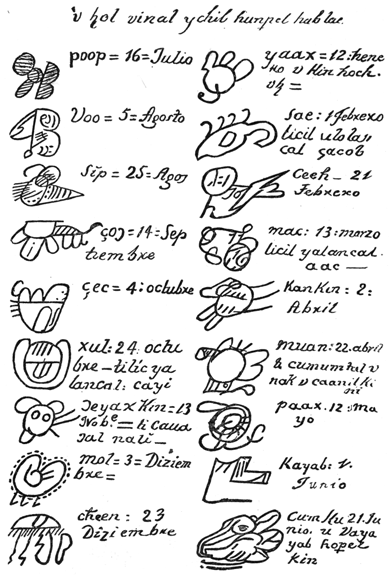 v hol vinal ychil hunpel hab lae.
poop = 16 = Julio
Voo = 5 = Agosto
Sip = 25 = Agos
çoj = 14 = Sep
tiembre
çec = 4: octubre
xul: 24. octu
bre — tilic ya
lancal: cayi
Ɔeyax Kin = 13
Nobe = li
nali —
mol = 3 = Diziem
bre =
cheen: 23
Diziembre
yaax = 12: hene
ro v kin hoch.
sac: 1 febrero
licil u lolan
cal sacob
Ceeh — 21
Febrero
mac: 13: marzo
licil yalancal.
aac —
Kan Kin: 2:
Abril
muan: 22. abril
& cumumtal v
nak v caanil ki
ni
paax. 12: ma
yo
Kayab: 1.
Junio
Cum Ku 21. Ju
nio. u Vaya
yab hopel
kin